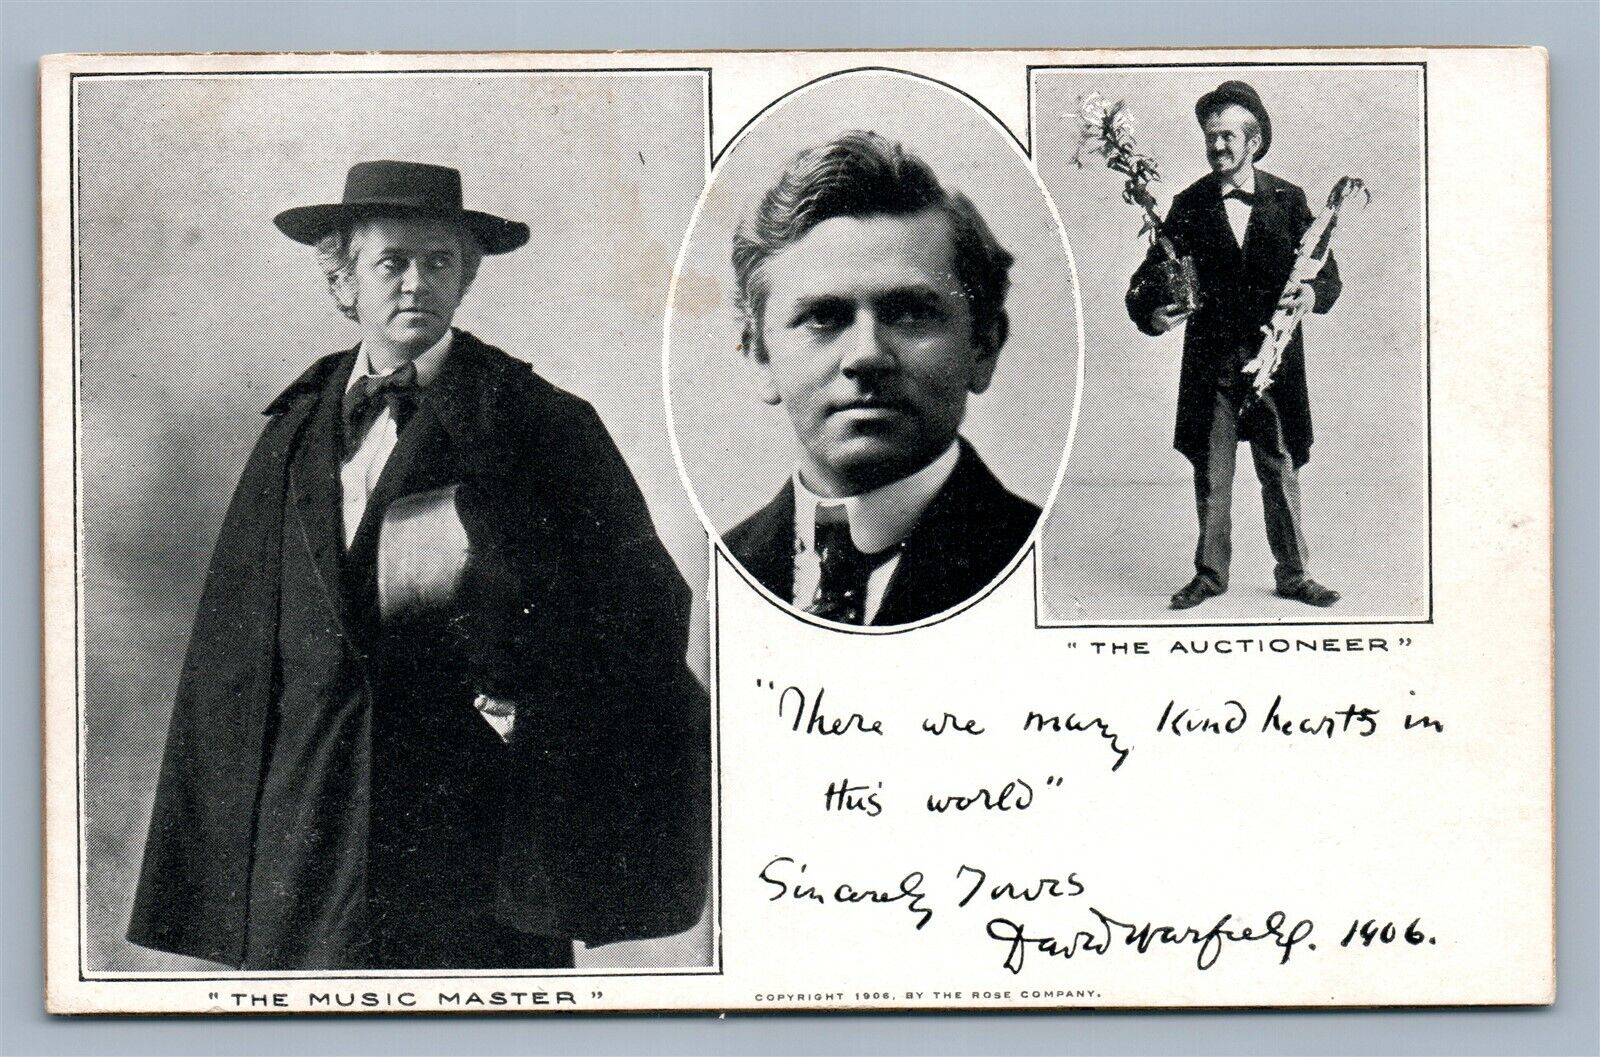 "THE AUCTIONEER"
"There are many kind hearts in
this world"
Sincerely Yours
David Warfield. 1906.
"THE MUSIC MASTER"
COPYRIGHT 1906, BY THE ROSE COMPANY.